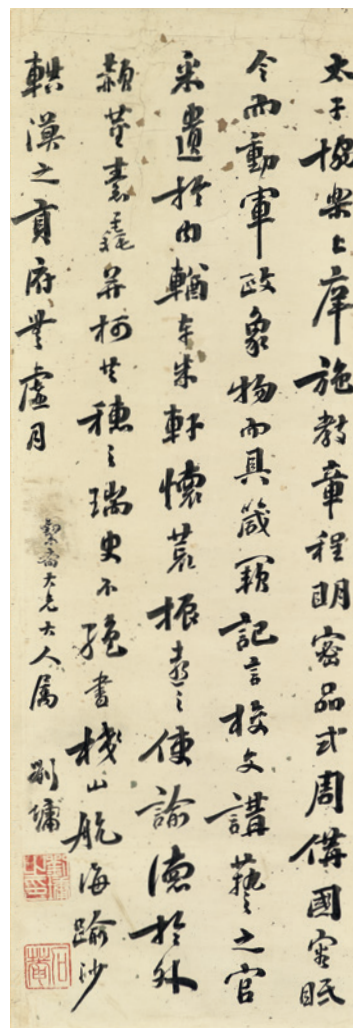 太子協樂上庠施教章程明密品式周備國容眡
令而動軍政象物而具箴闕記言校文講藝之官
采遺於內輶車朱軒懷荒振遠之使諭德於外
赬莖素毳并柯共穗之瑞史不絕書棧山航海踰沙
軼漠之貢府無虛月
大兄大人属
劉墉
劉墉之印
石菴